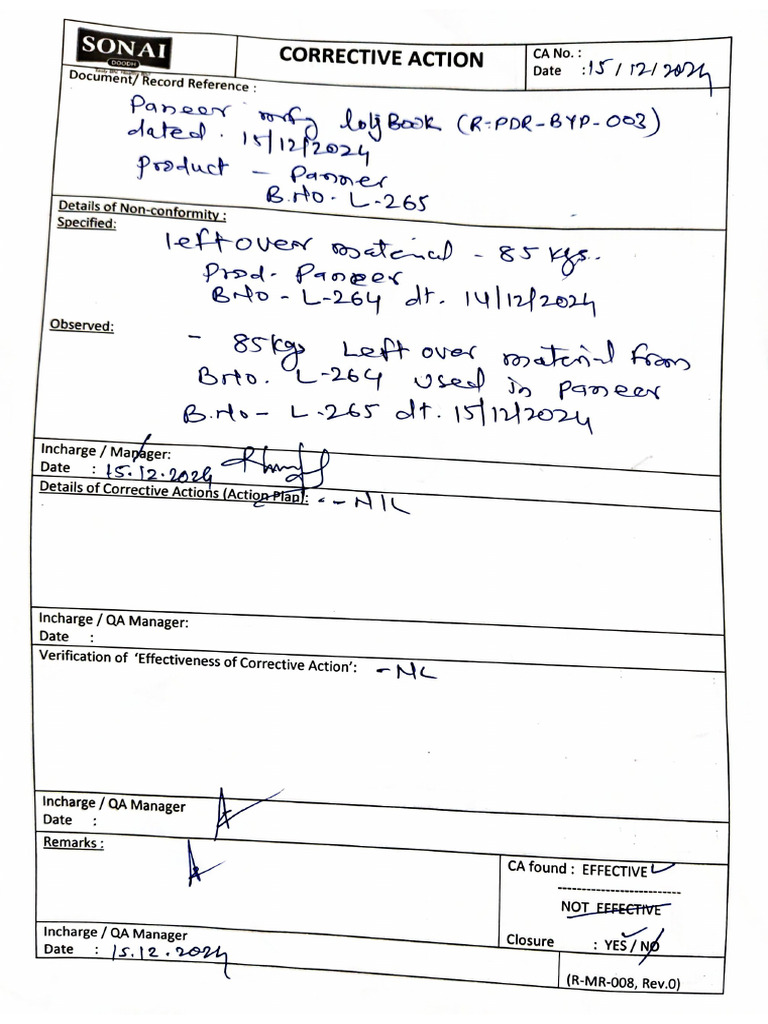 SONAI
DOODH
CORRECTIVE ACTION
CA No. :
Date : 15/12/2024
Document/ Record Reference :
Paneer mfg logBook (R-PDR-BYP-003)
dated. 15/12/2024
product - Panner
B.No. L-265
Details of Non-conformity :
Specified:
leftover material - 85 kgs.
Prod. Paneer
B No - L-264 dt. 14/12/2024
Observed:
- 85kgs Left over material from
B No. L-264 used in paneer
B.No - L-265 dt. 15/12/2024
Incharge / Manager:
Date : 15.12.2024
Details of Corrective Actions (Action Plan): - NIL
Incharge / QA Manager:
Date :
Verification of 'Effectiveness of Corrective Action': - NIL
Incharge / QA Manager
Date :
Remarks :
CA found : EFFECTIVE ✓
NOT EFFECTIVE
Closure : YES / NO
Incharge / QA Manager
Date : 15.12.2024
(R-MR-008, Rev.0)